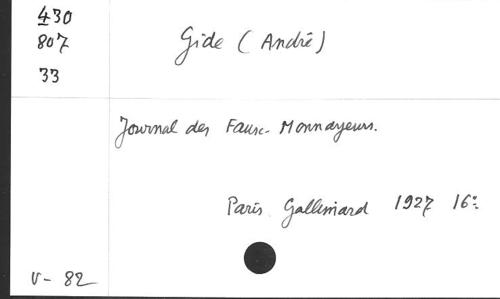 430
807
33
Gide (André)
Journal des Faux-Monnayeurs.
Paris Gallimard 1927 16º
V- 82